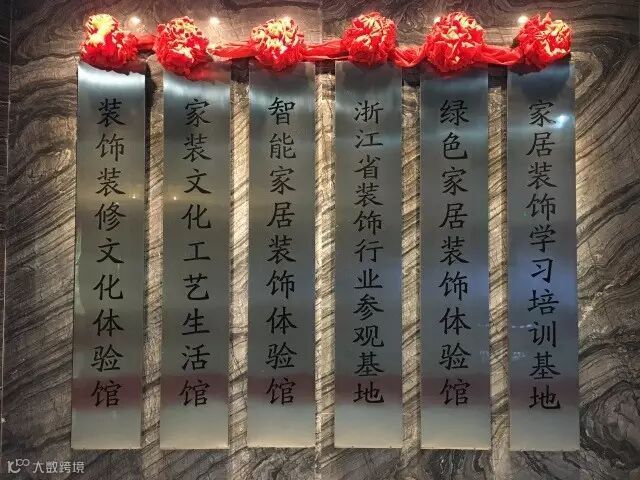 装饰装修文化体验馆
家装文化工艺生活馆
智能家居装饰体验馆
浙江省装饰行业参观基地
绿色家居装饰体验馆
家居装饰学习培训基地
大数跨境